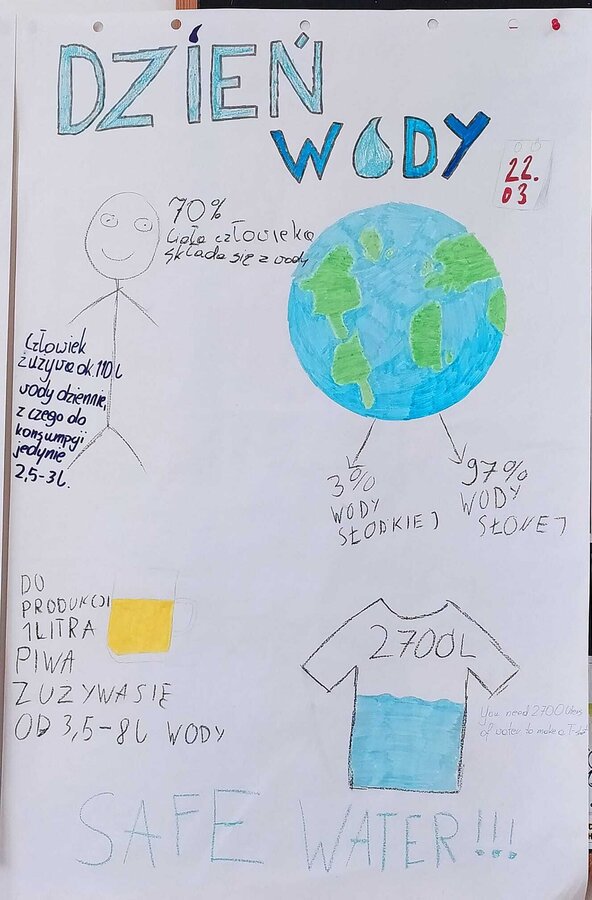 DZIEŃ
WODY
22.
03
70%
ciała człowieka
składa się z wody
Człowiek
zużywa ok. 110 l
wody dziennie,
z czego do
konsumpcji
jedynie
2,5-3l.
3%
WODY
SŁODKIEJ
97%
WODY
SŁONEJ
DO
PRODUKCJI
1 LITRA
PIWA
ZUZYWA SIĘ
OD 3,5-8l WODY
2700L
You need 2700 liters
of water to make a T-shirt
SAFE WATER!!!